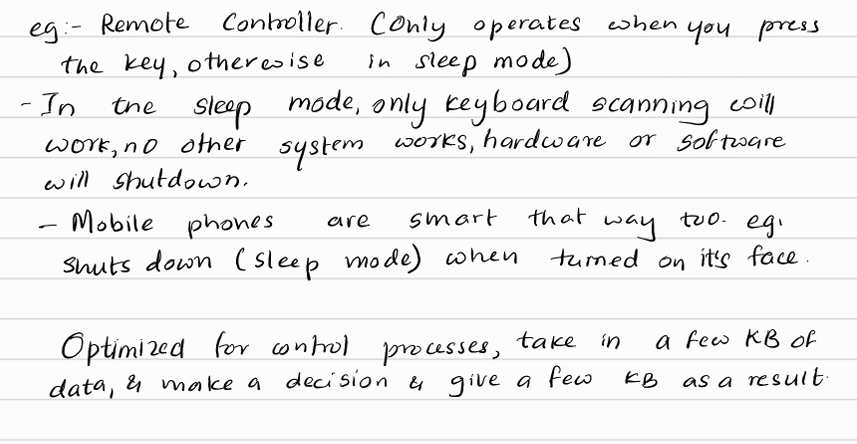 eg:- Remote Controller. (Only operates when you press
the key, otherwise in sleep mode)
- In the sleep mode, only keyboard scanning will
work, no other system works, hardware or software
will shutdown.
- Mobile phones are smart that way too. eg.
shuts down (sleep mode) when turned on it's face.
Optimized for control processes, take in a few KB of
data, & make a decision & give a few KB as a result.